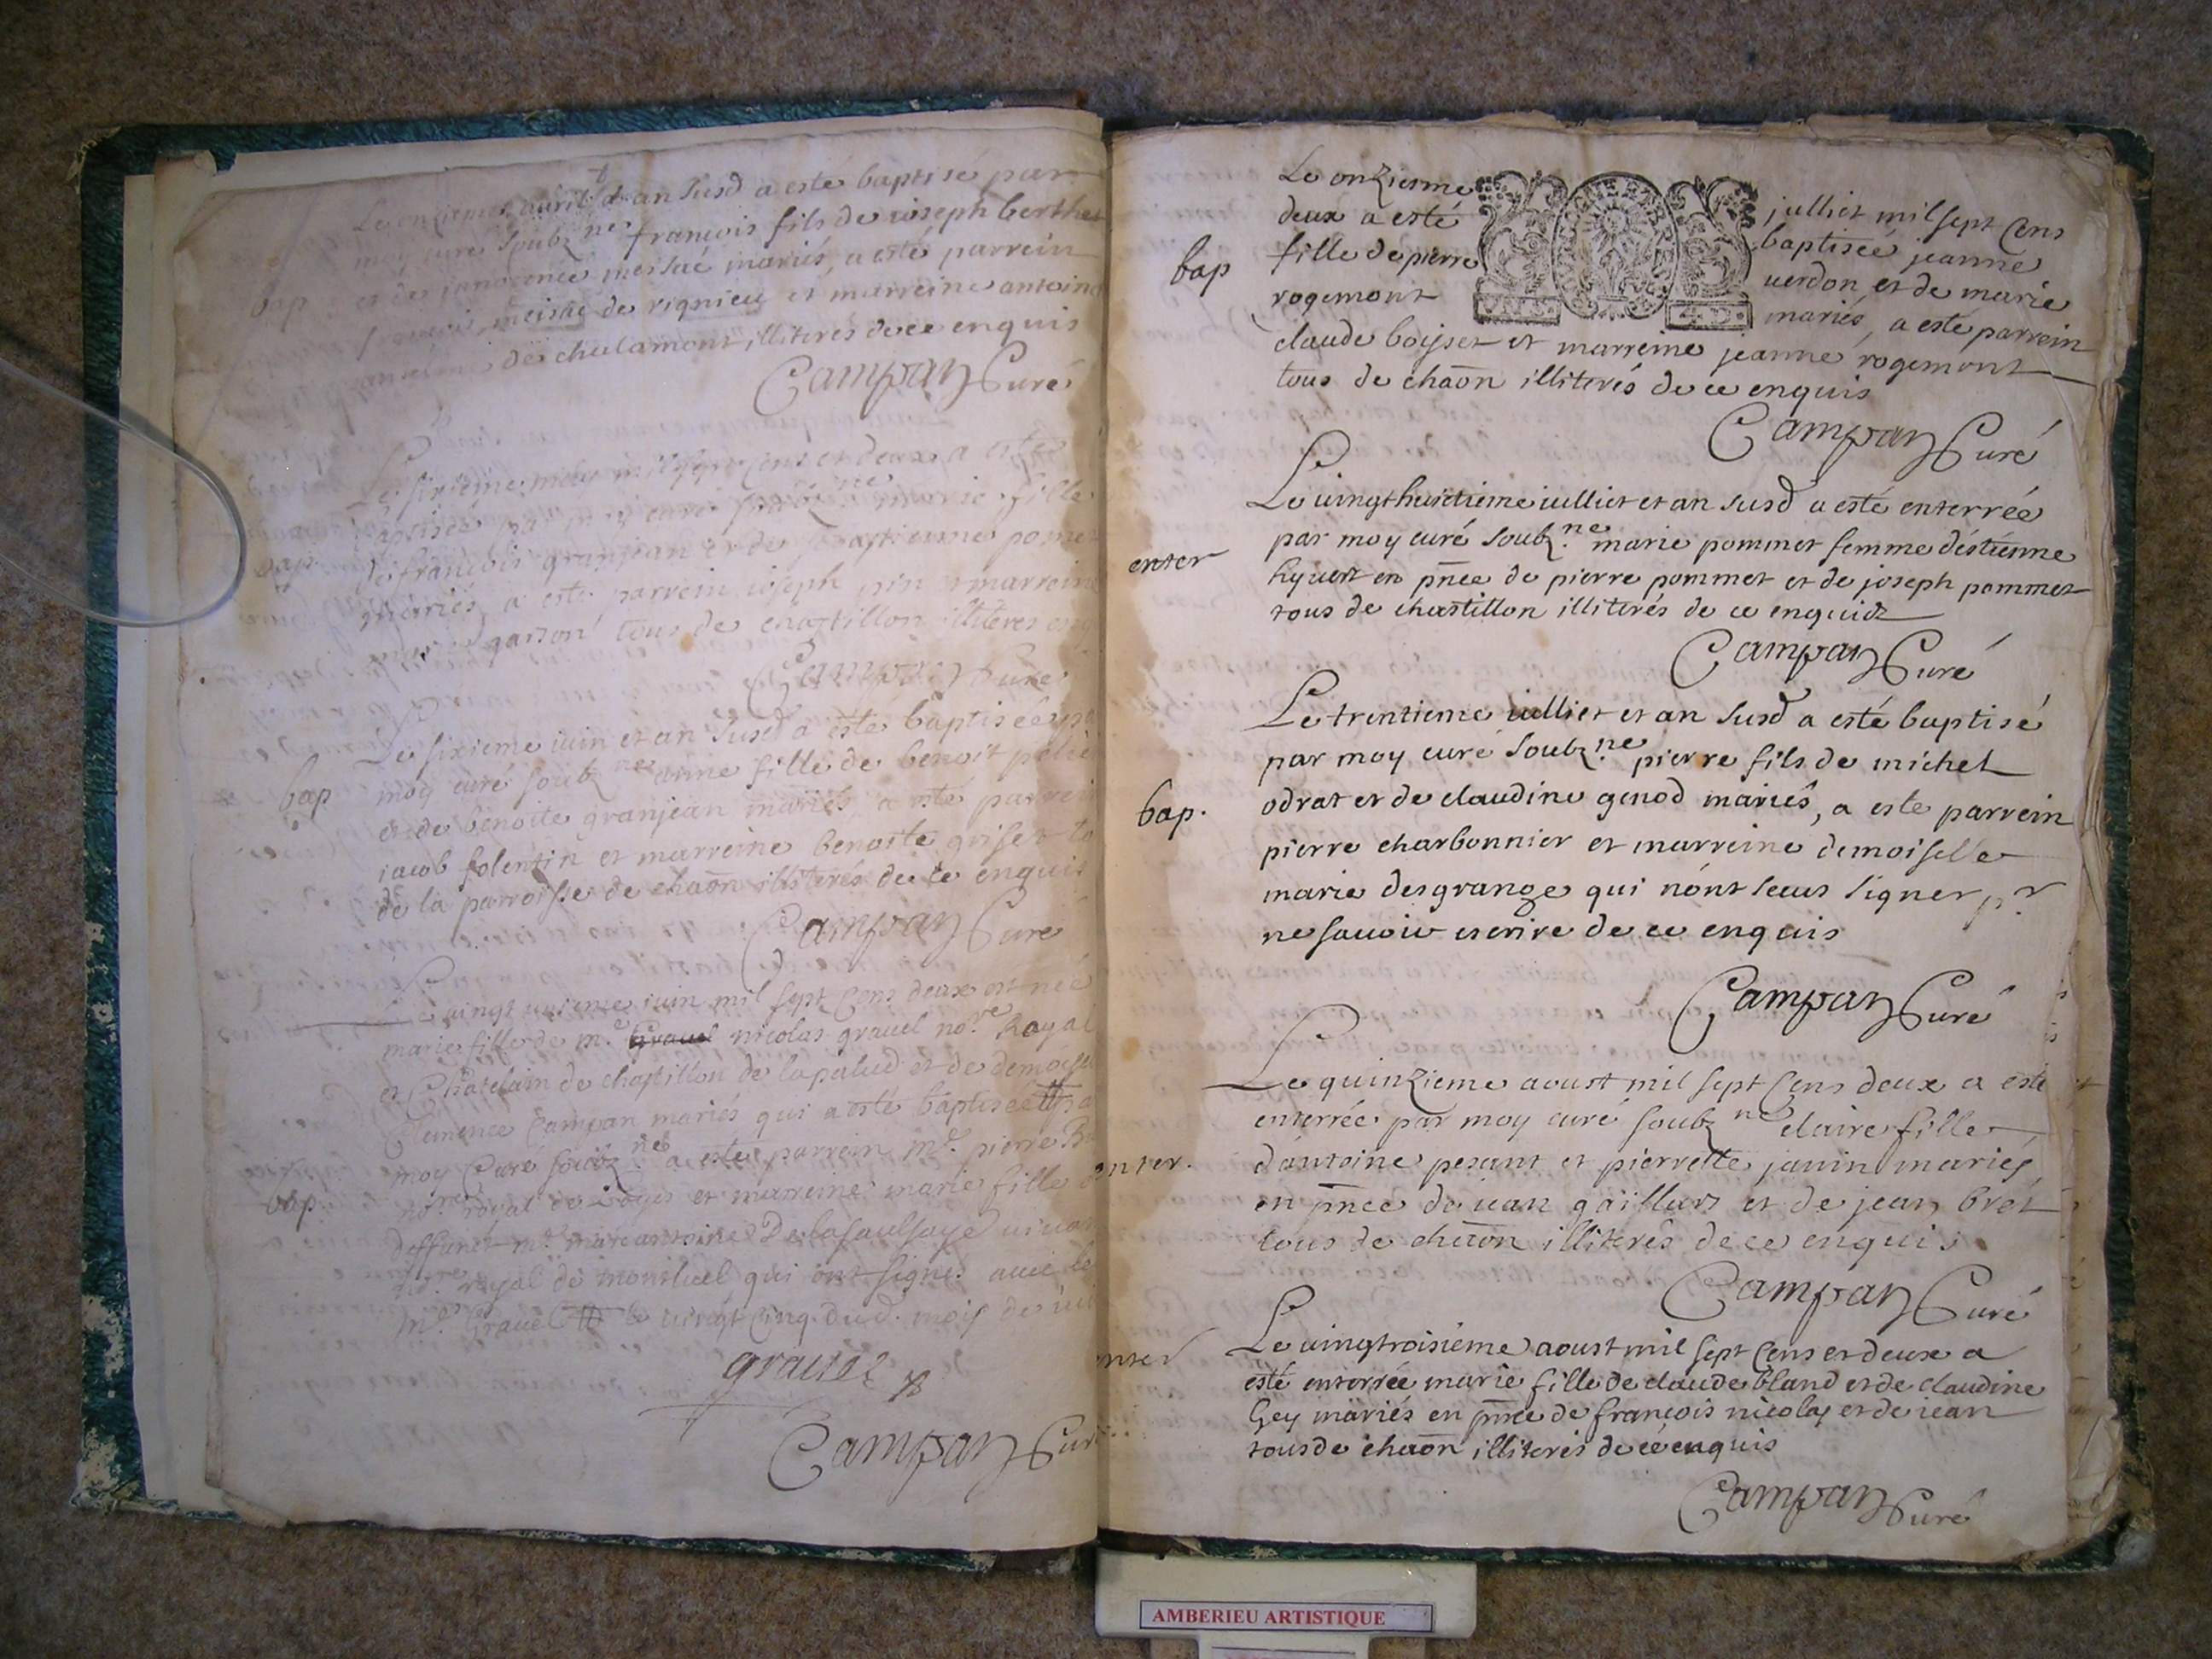 Le onzieme auril et an susd a esté baptisé par
moy curé soubz.né françois fils de ioseph berthet
bap
et de mariés, a esté parrein
françois meisac de rignieu et marreine antoine
de chalamont, illiterés de ce enquis
Campan Curé
Le sixieme mil sept cens et deux a esté
baptisée par moy curé soubz.né marie fille
bap
de françois granjean et de
mariés, a esté parrein ioseph et marreine
tous de chastillon illiterés
Campan Curé
Le sixieme iuin et an susd a esté baptisée
moy curé soubz.né anne fille de benoit
bap
et de benoite granjean mariés, a esté parrein
iacob folentin et marreine benoite griset
de la parroisse de chaōn illiterés de ce enquis
Campan Curé
Le uingt iuin mil sept cens deux est née
marie fille de me. Grauel nicolas grauel no.re Royal
et Chatelain de chastillon de lapalud et de demoiselle
Clemence Campan mariés qui a esté baptisée
moy Curé soubz.né a esté parrein me. pierre
bap
no.re royal de et marreine marie fille
deffunct me. marcantoine Delasaulsaye uiuant
no.re royal de montluel qui ont signés auec le
me. Grauel le uingt cinq dud. mois de iuin
grauel
Campan Curé
Le onzieme julliet mil sept Cens
deux a esté baptisée jeanne
bap
fille de pierre uerdon et de marie
rogemont mariés, a esté parrein
claude boisset et marreine jeanne rogemont
tous de chaōn illiterés de ce enquis
Campan Curé
Le uingthuictieme iulliet et an susd a esté enterrée
par moy curé soubz.né marie pommet femme d'estienne
enter
hyuert en pn̄ce de pierre pommet et de joseph pommet
tous de chastillon illiterés de ce enquis
Campan Curé
Le trentieme iulliet et an susd a esté baptisé
par moy curé soubz.né pierre fils de michel
bap.
odrat et de claudine genod mariés, a este parrein
pierre charbonnier et marreine demoiselle
marie desgrange qui nont sceus signer pr
ne sauoir escrire de ce enquis
Campan Curé
Le quinzieme aoust mil sept Cens deux a esté
enterrée par moy curé soubz né claire fille
enter.
d'antoine pesant et pierrette janin mariés
en pn̄ce de iean gaillard et de jean bret
tous de chaōn illiterés de ce enquis
Campan Curé
enter
Le uingtroisiéme aoust mil sept Cens et deux a
esté enterrée marie fille de claude bland et de claudine
Gey mariés en pn̄ce de françois nicolas et de iean
tous de chaōn illiterés de ce enquis
Campan Curé
AMBERIEU ARTISTIQUE